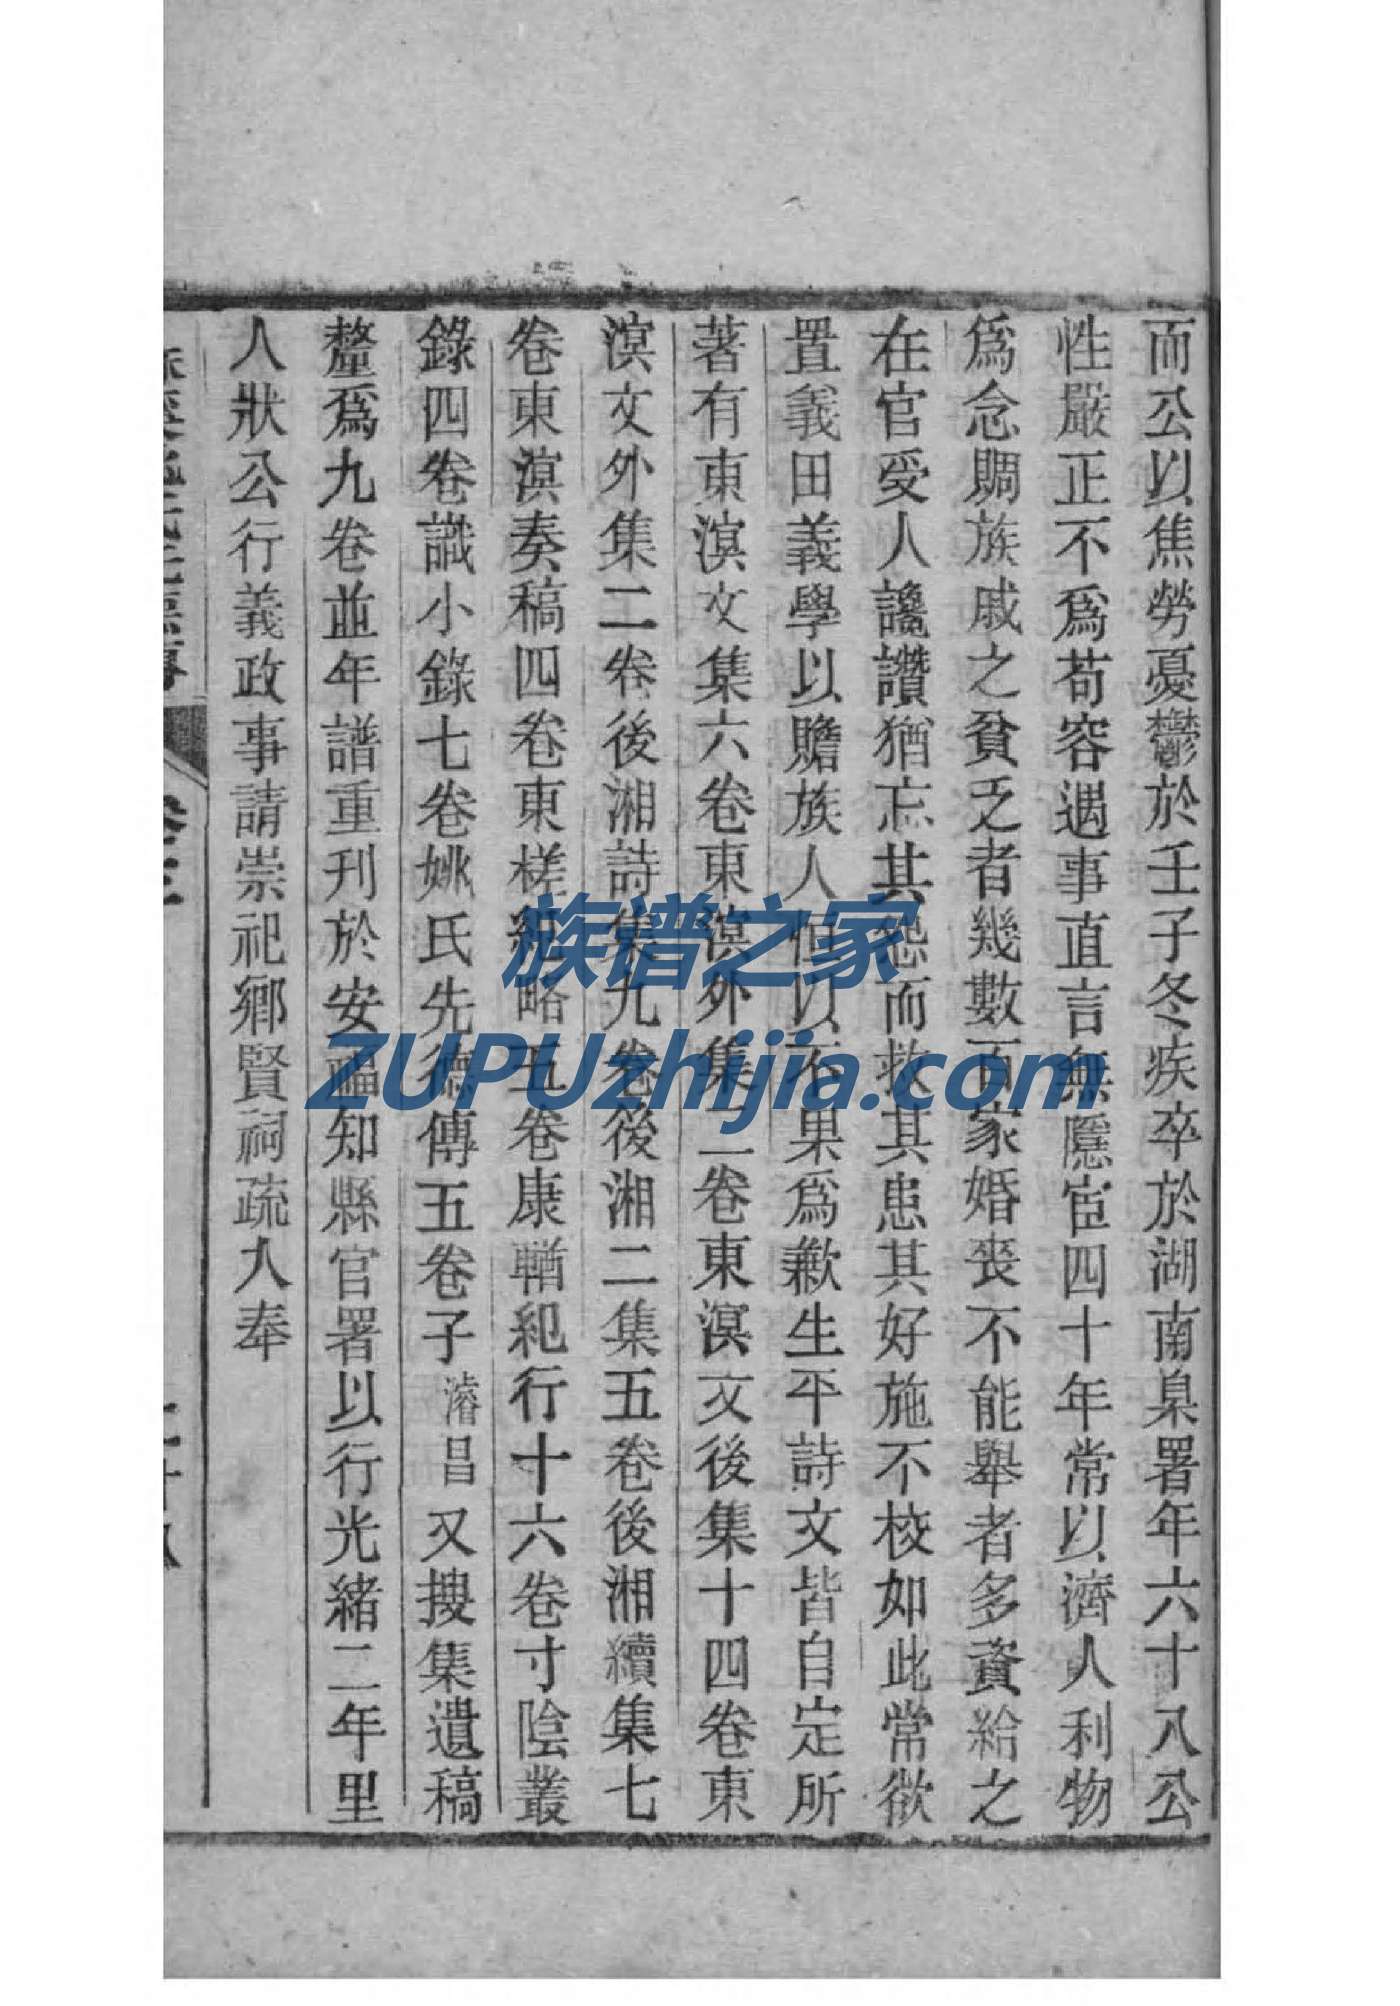 而公以焦勞憂鬱於壬子冬疾卒於湖南臬署年六十八公
性嚴正不爲苟容遇事直言無隱宦四十年常以濟人利物
爲念賙族戚之貧乏者幾數百家婚喪不能舉者多資給之
在官受人讒讚猶忘其怨而救其患其好施不校如此常欲
置義田義學以贍族人但以不果爲歉生平詩文皆自定所
著有東溟文集六卷東溟外集二卷東溟文後集十四卷東
溟文外集二卷後湘詩集九卷後湘二集五卷後湘續集七
卷東溟奏稿四卷東槎紀略五卷康輶紀行十六卷寸陰叢
錄四卷識小錄七卷姚氏先德傳五卷子濬昌又搜集遺稿
釐爲九卷並年譜重刊於安福知縣官署以行光緒二年里
人狀公行義政事請崇祀鄉賢祠疏入奉
族谱之家
ZUPUzhijia.com